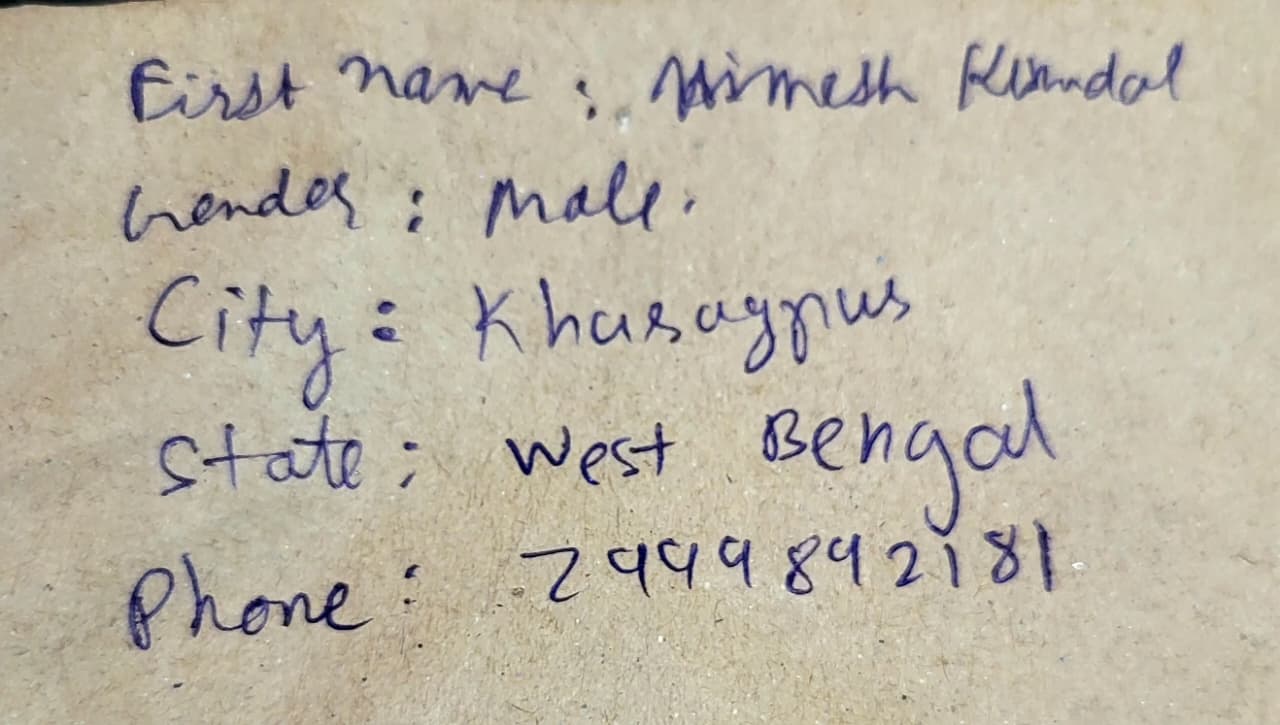 First name : Nimesh Kundal
Gender : Male.
City : Kharagpur
State : West Bengal
Phone :